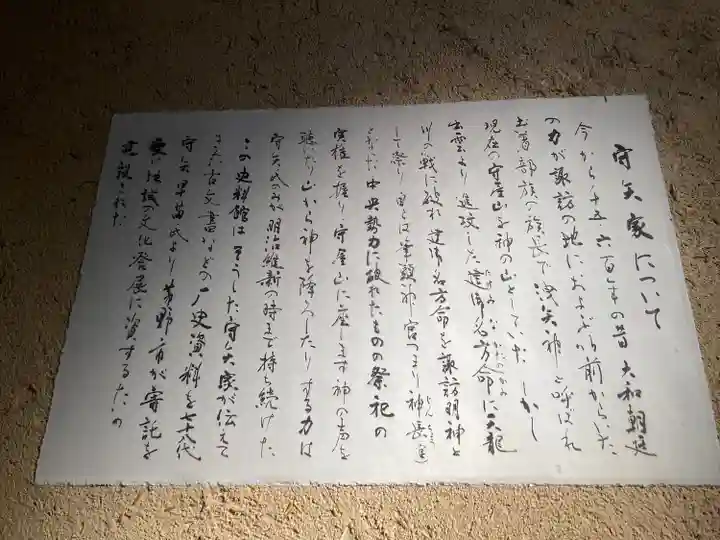 守矢家について
今から千五・六百年の昔 大和朝廷
の力が諏訪の地におよぶ以前からいた
土着部族の族長で 洩矢神と呼ばれ
現在の守屋山を神の山としていた しかし
出雲より進攻した建御名方命に天龍
たけみなかたのみこと
川の戦に敗れ 建御名方命を諏訪明神と
して祭り 自らは筆頭神官つまり神長官
となった 中央勢力に敗れたものの祭祀の
実権を握り 守屋山に座します神の声を
聴いたり山から神を降ろしたりする力は
守矢氏のみが明治維新の時まで持ち続けた
この史料館は そうした守矢家が伝えて
きた古文書などの歴史資料を七十八代
守矢早苗氏より茅野市が寄託を
受け 地域の文化発展に資するため
建設された